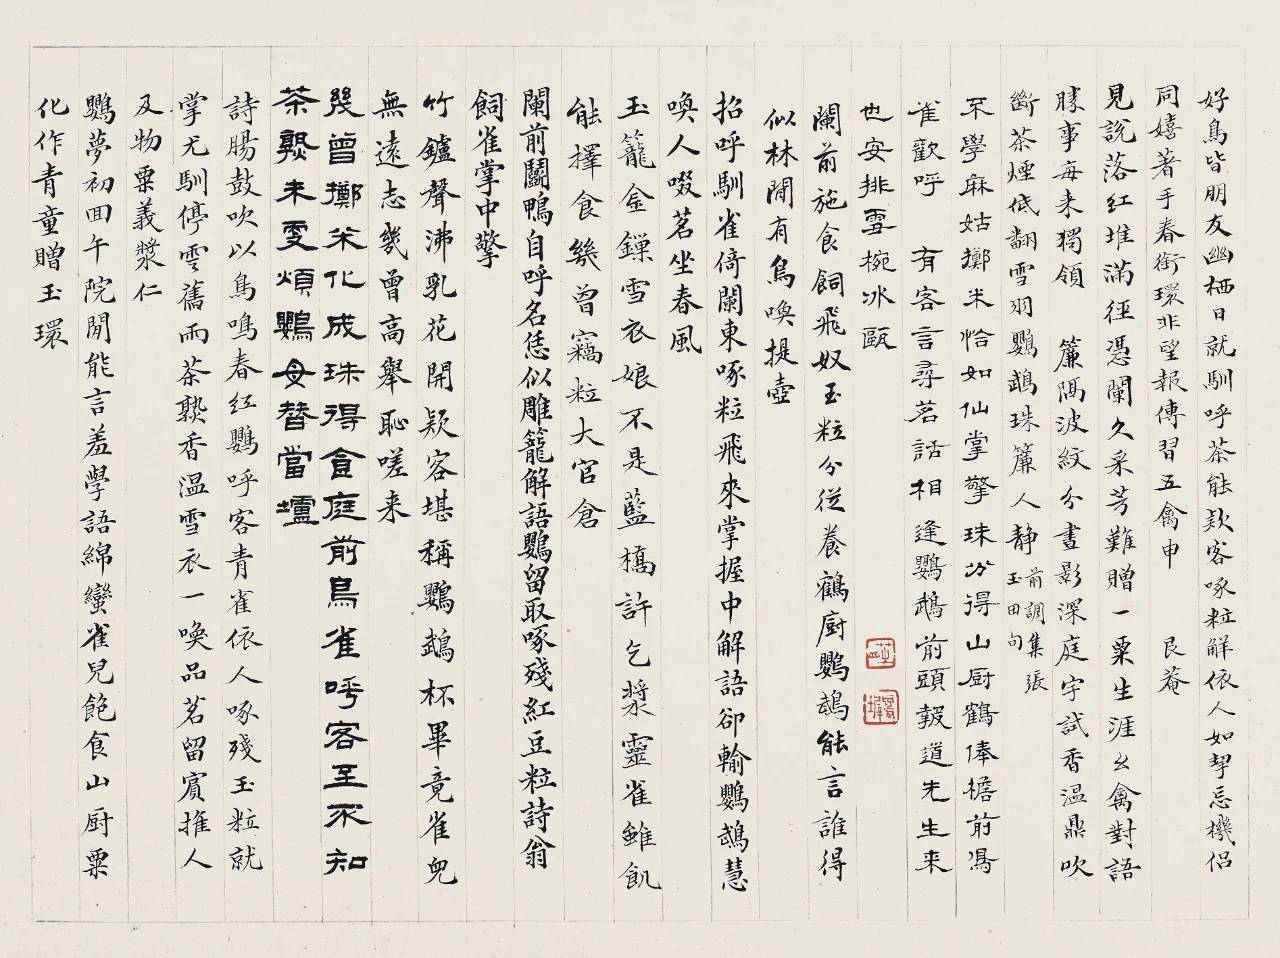 好鳥皆朋友幽栖日就馴呼茶能款客啄粒解依人如挈忘機侶
同嬉著手春銜環非望報傳習五禽申 艮菴
見說落紅堆滿徑憑闌久采芳難贈一粟生涯幺禽對語
勝事每來獨領 簾隔波紋分晝影深庭宇試香溫鼎吹
斷茶煙低翻雪羽鸚鵡珠簾人靜 前調集張
玉田句
不學麻姑擲米恰如仙掌擎珠分得山廚鶴俸檐前馮
雀歡呼 有客言尋茗話相逢鸚鵡前頭報道先生来
也安排雪椀冰甌
闌前施食飼飛奴玉粒分從養鶴廚鸚鵡能言誰得
似林間有鳥喚提壺
招呼馴雀倚闌東啄粒飛來掌握中解語卻輸鸚鵡慧
喚人啜茗坐春風
玉籠金鏁雪衣娘不是藍橋許乞漿靈雀雖飢
能擇食幾曾竊粒大官倉
闌前鬬鴨自呼名恁似雕籠解語鸚留取啄殘紅豆粒詩翁
飼雀掌中擎
竹鑪聲沸乳花開款客堪稱鸚鵡杯畢竟雀兒
無遠志幾曾高舉恥嗟来
幾曾擲米化成珠得食庭前鳥雀呼客至不知
茶熟未更煩鸚母替當壚
詩腸鼓吹以鳥鳴春紅鸚呼客青雀依人啄殘玉粒就
掌尤馴停雲舊雨茶熟香温雪衣一喚品茗留賓推人
及物粟義漿仁
鸚夢初回午院閒能言羞學語綿蠻雀兒飽食山廚粟
化作青童贈玉環